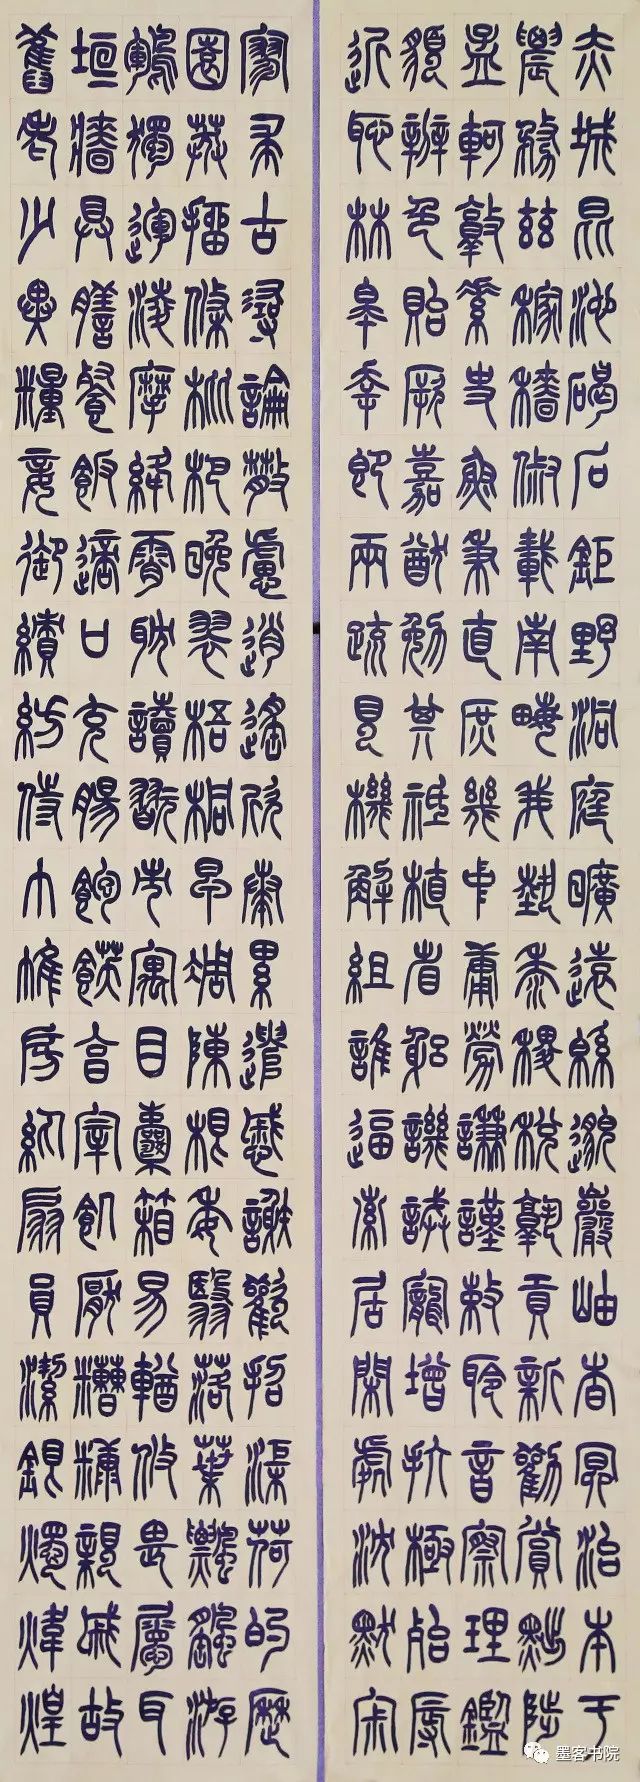 赤城昆池碣石鉅野洞庭曠遠綿邈巖岫杳冥治本于
農務茲稼穡俶載南畝我藝黍稷稅熟貢新勸賞黜陟
孟軻敦素史魚秉直庶幾中庸勞謙謹敕聆音察理鑑
貌辨色貽厥嘉猷勉其祗植省躬譏誡寵增抗極殆辱
近恥林皋幸即兩疏見機解組誰逼索居閒處沈默寂
寥求古尋論散慮逍遙欣奏累遣慼謝歡招渠荷的歷
園莽抽條枇杷晚翠梧桐早凋陳根委翳落葉飄颻游
鵾獨運凌摩絳霄耽讀翫市寓目囊箱易輶攸畏屬耳
垣牆具膳餐飯適口充腸飽飫享宰飢厭糟糠親戚故
舊老少異糧妾御績紡侍巾帷房紈扇員潔銀燭煒煌
墨客书院